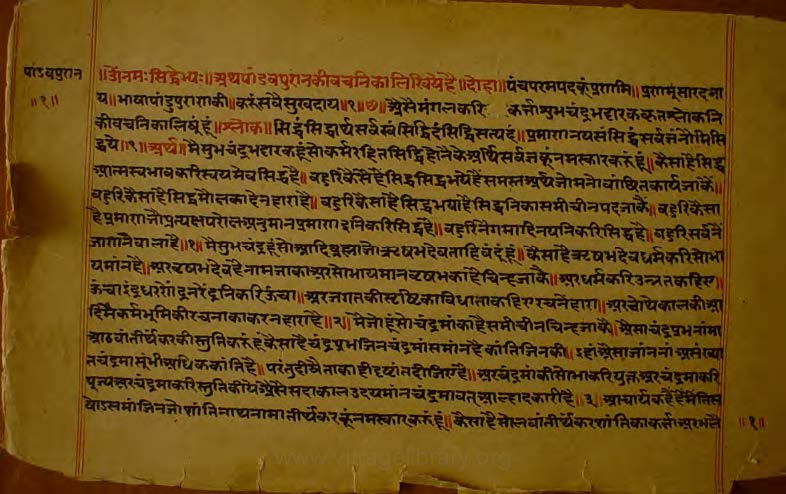 पांडवपुरान
॥१॥
॥ॐनमःसिद्धेभ्यः॥अथपांडवपुरानकीवचनिकालिखियेहै॥दोहा॥पंचपरमपदकूंप्रणमि॥प्रणमूंसारदमा
य॥भाषापांडुपुराणकी॥करूंसर्वसुखदाय॥१॥ असेमंगलकरि कर्त्ताशुभचंद्रभट्टारककृतश्लोकनि
कीवचनिकालिषूंहूं॥श्लोक॥सिद्धंसिद्धार्थसर्वस्वंसिद्धिदंसिद्धिसत्पदं॥प्रमाणनयसंसिद्धंसर्वज्ञंनौमिसि
द्धये॥१॥अर्थ॥मैसुभचंद्रभट्टारकहूंसोकर्मरहितसिद्धिहोनैकेअर्थिसर्वज्ञकूंनमस्कारकरूंहूं॥कैसाहैसिद्ध
आत्मस्वभावकरिस्वयमेवसिद्धहै॥बहुरिकैसेहैसिद्धसिद्धभयेहैसमस्तअर्थजोमनोवांछितकार्यजाकैं॥
बहुरिकैसाहैसिद्धमोलकादेनहाराहै॥बहुरिकैसाहैसिद्धभयाहैसिद्धनिकासमीचीनपदजाकै॥बहुरिकैसा
हैप्रमाणजोप्रत्यक्षपरोक्षअनुमानप्रमाणादिनकरिसिद्धहै॥बहुरिनैगमादिनयनिकरिसिद्धहै॥बहुरिसर्वनैं
जाणनैवालाहै॥१॥मैसुभचंद्रहूंसोआदिब्रह्माजोऋषभदेवताहिवंदूंहूं॥कैसाहैऋषभदेवधर्मकरिसोभा
यमांनहै॥अरऋषभदेवहैनामजाकाअरसोभायमानऋषभकाहैचिन्हजाकै॥अरधर्मकरिउन्नतकहिए
ऊंचाइंद्रधरणेंद्रनरेंद्रनिकरिऊंचा॥अरजगतकीसृष्टिकाविधाताकहिएरचनेहारा॥अरचोथेकालकीआ
दिमैंकर्मभूमिकीरचनाकाकरनहाराहै॥२॥मैजोहूंसोचंद्रमांकाहैसमीचीनचिन्हजाकै॥असाचंद्रप्रभनांमा
आठवांतीर्थंकरकीस्तुतिकरूंहूंकैसाहैचंद्रप्रभजिनचंद्रमांसमांनहैकांतिजिनकी॥इहांअैसाजांननांअसंख्या
तचंद्रमासूंभीअधिककांतिहै॥परंतुदीप्तैताकाहीदृष्टांतदीजिएहै॥अरचंद्रमांकीसोभाकरियुक्तअरचंद्रमाकरि
पूज्यअरचंद्रमाकरिस्तुतिकीयेअैसेसदाकालउदयमांनचंद्रमावतआल्हादकारीहै॥३॥आचार्यकहैहैंमैतिस
सोलसमांजिनजोशांतिनाथनामातीर्थंकरकूंनमस्कारकरूंहूं॥कैसाहैसोलवांतीर्थंकरशांतिकाकर्त्ताअरभलै
॥१॥
www.vintagelibrary.org